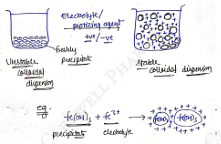 electrolyte/
peptising agent
+ve/-ve
freshly
precipitate
Unstable
colloidal
dispersion
Stable
colloidal dispersion
eg.
fe(OH)3 + fe3+ →
precipitate electrolyte